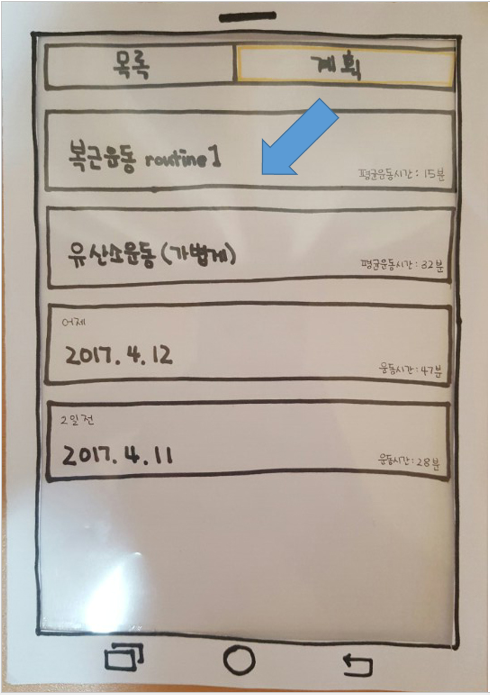 목록
계획
복근운동 routine 1
평균운동시간 : 15분
유산소운동 (가볍게)
평균운동시간 : 32분
어제
2017. 4. 12
운동시간 : 47분
2일전
2017. 4. 11
운동시간 : 28분